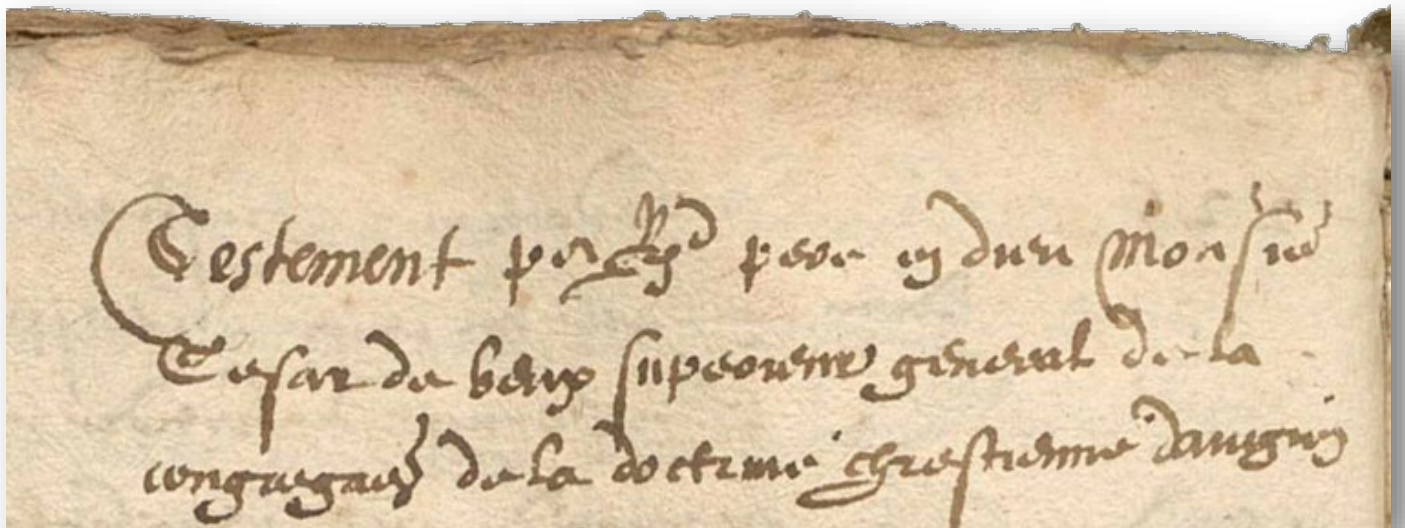 Testement per Rd pere en dieu Monsieur
Cesar de beux superieur general de la
congregaon de la doctrine chrestienne davignon